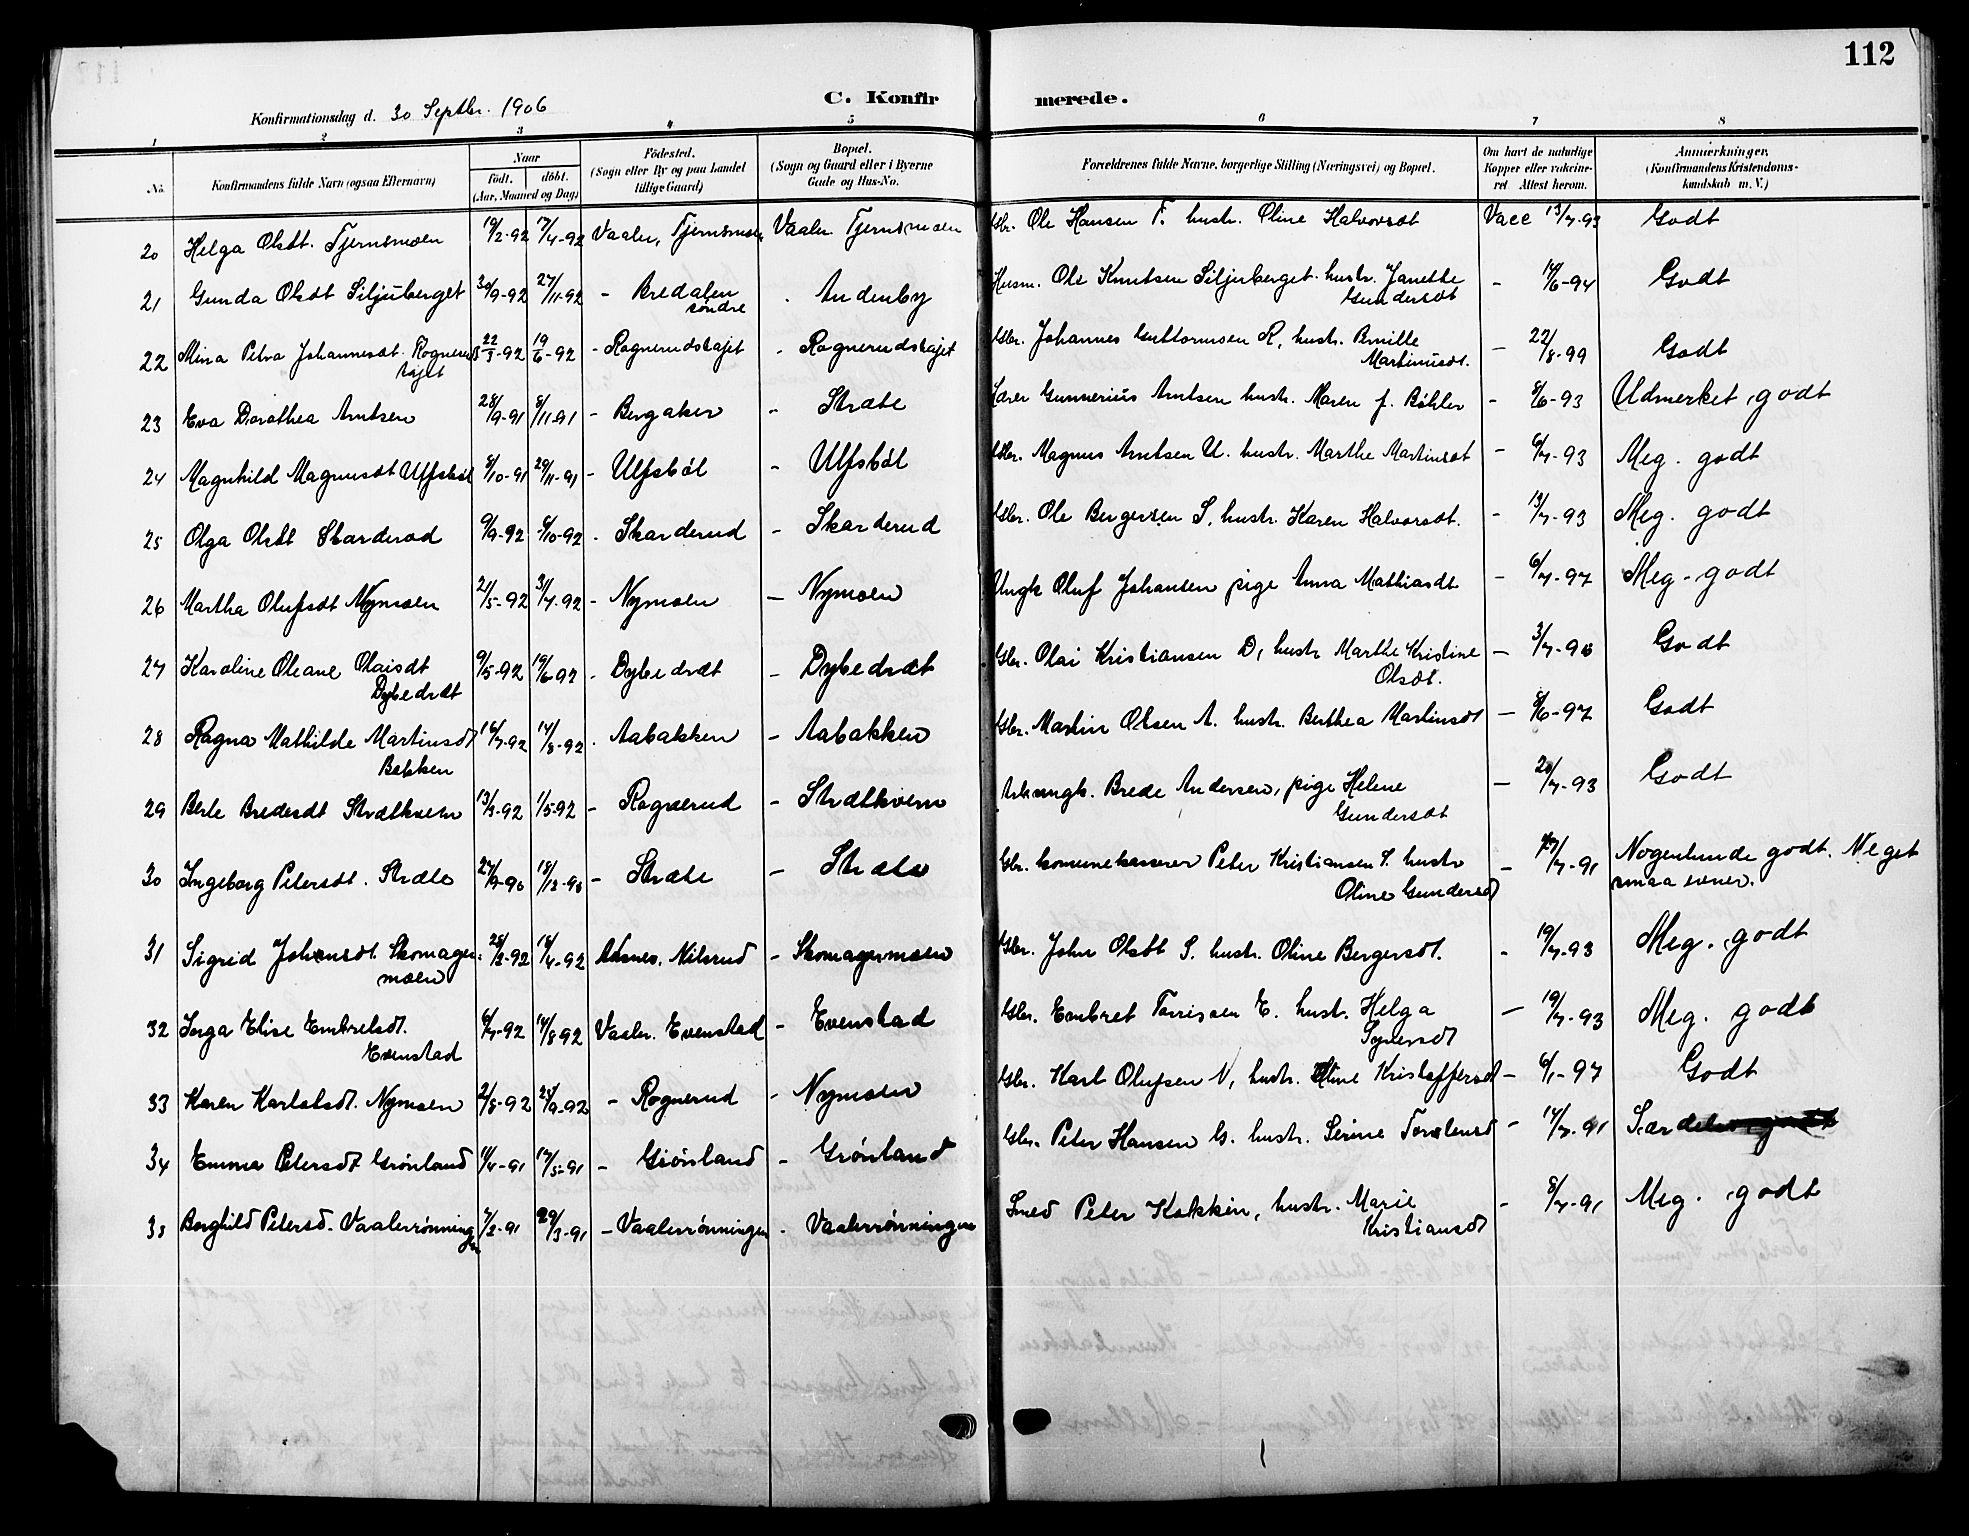 112
Konfirmationsdag d. 30 Septbr. 1906
C. Konfirmerede.
1 2 3 4 5 6 7 8
No.
Konfirmandens fulde Navn (ogsaa Efternavn)
Naar
født. døbt.
(Aar, Maaned og Dag)
Fødested.
(Sogn eller By og paa Landet
tillige Gaard)
Bopæl.
(Sogn og Gaard eller i Byerne
Gade og Hus-No.
Forældrenes fulde Navne, borgerlige Stilling (Næringsvei) og Bopæl.
Om havt de naturlige
Kopper eller vakcine-
ret. Attest herom.
Anmærkninger.
(Konfirmandens Kristendoms-
kundskab m. V.)
20 Helga Olsdt. Tjernsmoen 19/2-92 17/4-92 Vaaler, Tjernsmoen Vaaler Tjernsmoen Gbr. Ole Hansen T. hustr. Oline Halvorsdt Vacc 13/7-93 Godt
21 Gunda Olsdt Siljuberget 30/9-92 27/11-92 - Bredalen søndre - Andenby Husm. Ole Knutsen Siljuberget hustr. Janette Gundersdt - 14/6-94 Godt
22 Mina Petra Johannesdt. Rognerudstajet 22/3-92 19/6-92 - Rognerudstajet - Rognerudstajet Gbr. Johannes Guttormsen R, hustr. Bmille Martinusdt. - 22/8-99 Godt
23 Eva Dorothea Arntsen 28/9-91 8/11-91 - Bergaker - Stræte Lærer Gunnerius Arntsen hustr. Maren f. Bøhler - 8/6-93 Udmerket godt
24 Magnhild Magnusdt Ulfsbøl 8/10-91 29/11-91 - Ulfsbøl - Ulfsbøl Gbr. Magnus Arntsen U. hustr. Marthe Martinsdt - 6/7-93 Meg. godt
25 Olga Olsdt Skarderud 9/9-92 9/10-92 - Skarderud - Skarderud Gbr. Ole Bergersen S, hustr. Karen Halvorsdt. - 13/7-93 Meg. godt
26 Martha Olufsdt Nymoen 21/5-92 31/7-92 - Nymoen - Nymoen Ungk Oluf Johansen pige Anna Mathiasdt - 6/7-97 Meg. godt
27 Karoline Oleane Olaisdt Dybedræt 9/5-92 19/6-92 - Dybedræt - Dybedræt Gbr. Olai Kristiansen D, hustr Marthe Kristine Olsdt. - Godt
28 Ragna Mathilde Martinsdt Bakken 16/7-92 14/8-92 - Aabakken - Aabakken Gbr. Martin Olsen A. hustr. Berthea Martinsdt - 8/6-97 Godt
29 Berte Bredesdt Strætkvern 13/3-92 1/5-92 - Rognerud - Strætkvern Arb. ungk. Brede Andersen, pige Helene Gundersdt - Godt
30 Ingeborg Petersdt. Stræte 27/9-90 18/12-90 - Stræte - Stræte Gbr. komunekasserer Peter Kristiansen S. hustr Oline Gundersdt - Nogenlunde godt. Meget smaa evner.
31 Sigrid Johnsdt. Skomagermoen 28/2-92 18/4-92 Aasnes. Nilsrud - Skomagermoen Gbr. John Olsøt S. hustr. Oline Bergersdt. - 19/7-93 Meg. godt
32 Inga Elise Embretsdt. Evenstad 6/7-92 14/8-92 Vaaler. Evenstad - Evenstad Gbr. Embret Torrissen E. hustr. Helga Syversdt - 19/7-93 Meg. godt
33 Karen Karlsdt. Nymoen 2/8-92 25/9-92 - Rognerud - Nymoen Gbr. Karl Olufsen N, hustr. Oline Kristoffersdt - 6/1-97 Godt
34 Emma Petersdt Grønland 11/4-91 17/5-91 - Grønland - Grønland Gbr. Peter Hansen G. hustr. Serine Torstensdt - 14/7-91 Særdeles godt
35 Borghild Petersd. Vaalerrønningen 7/2-91 29/3-91 - Vaalerrønningen - Vaalerrønningen Smed Peter Kokkin, hustr. Marie Kristiansdt - 8/7-91 Meg. godt